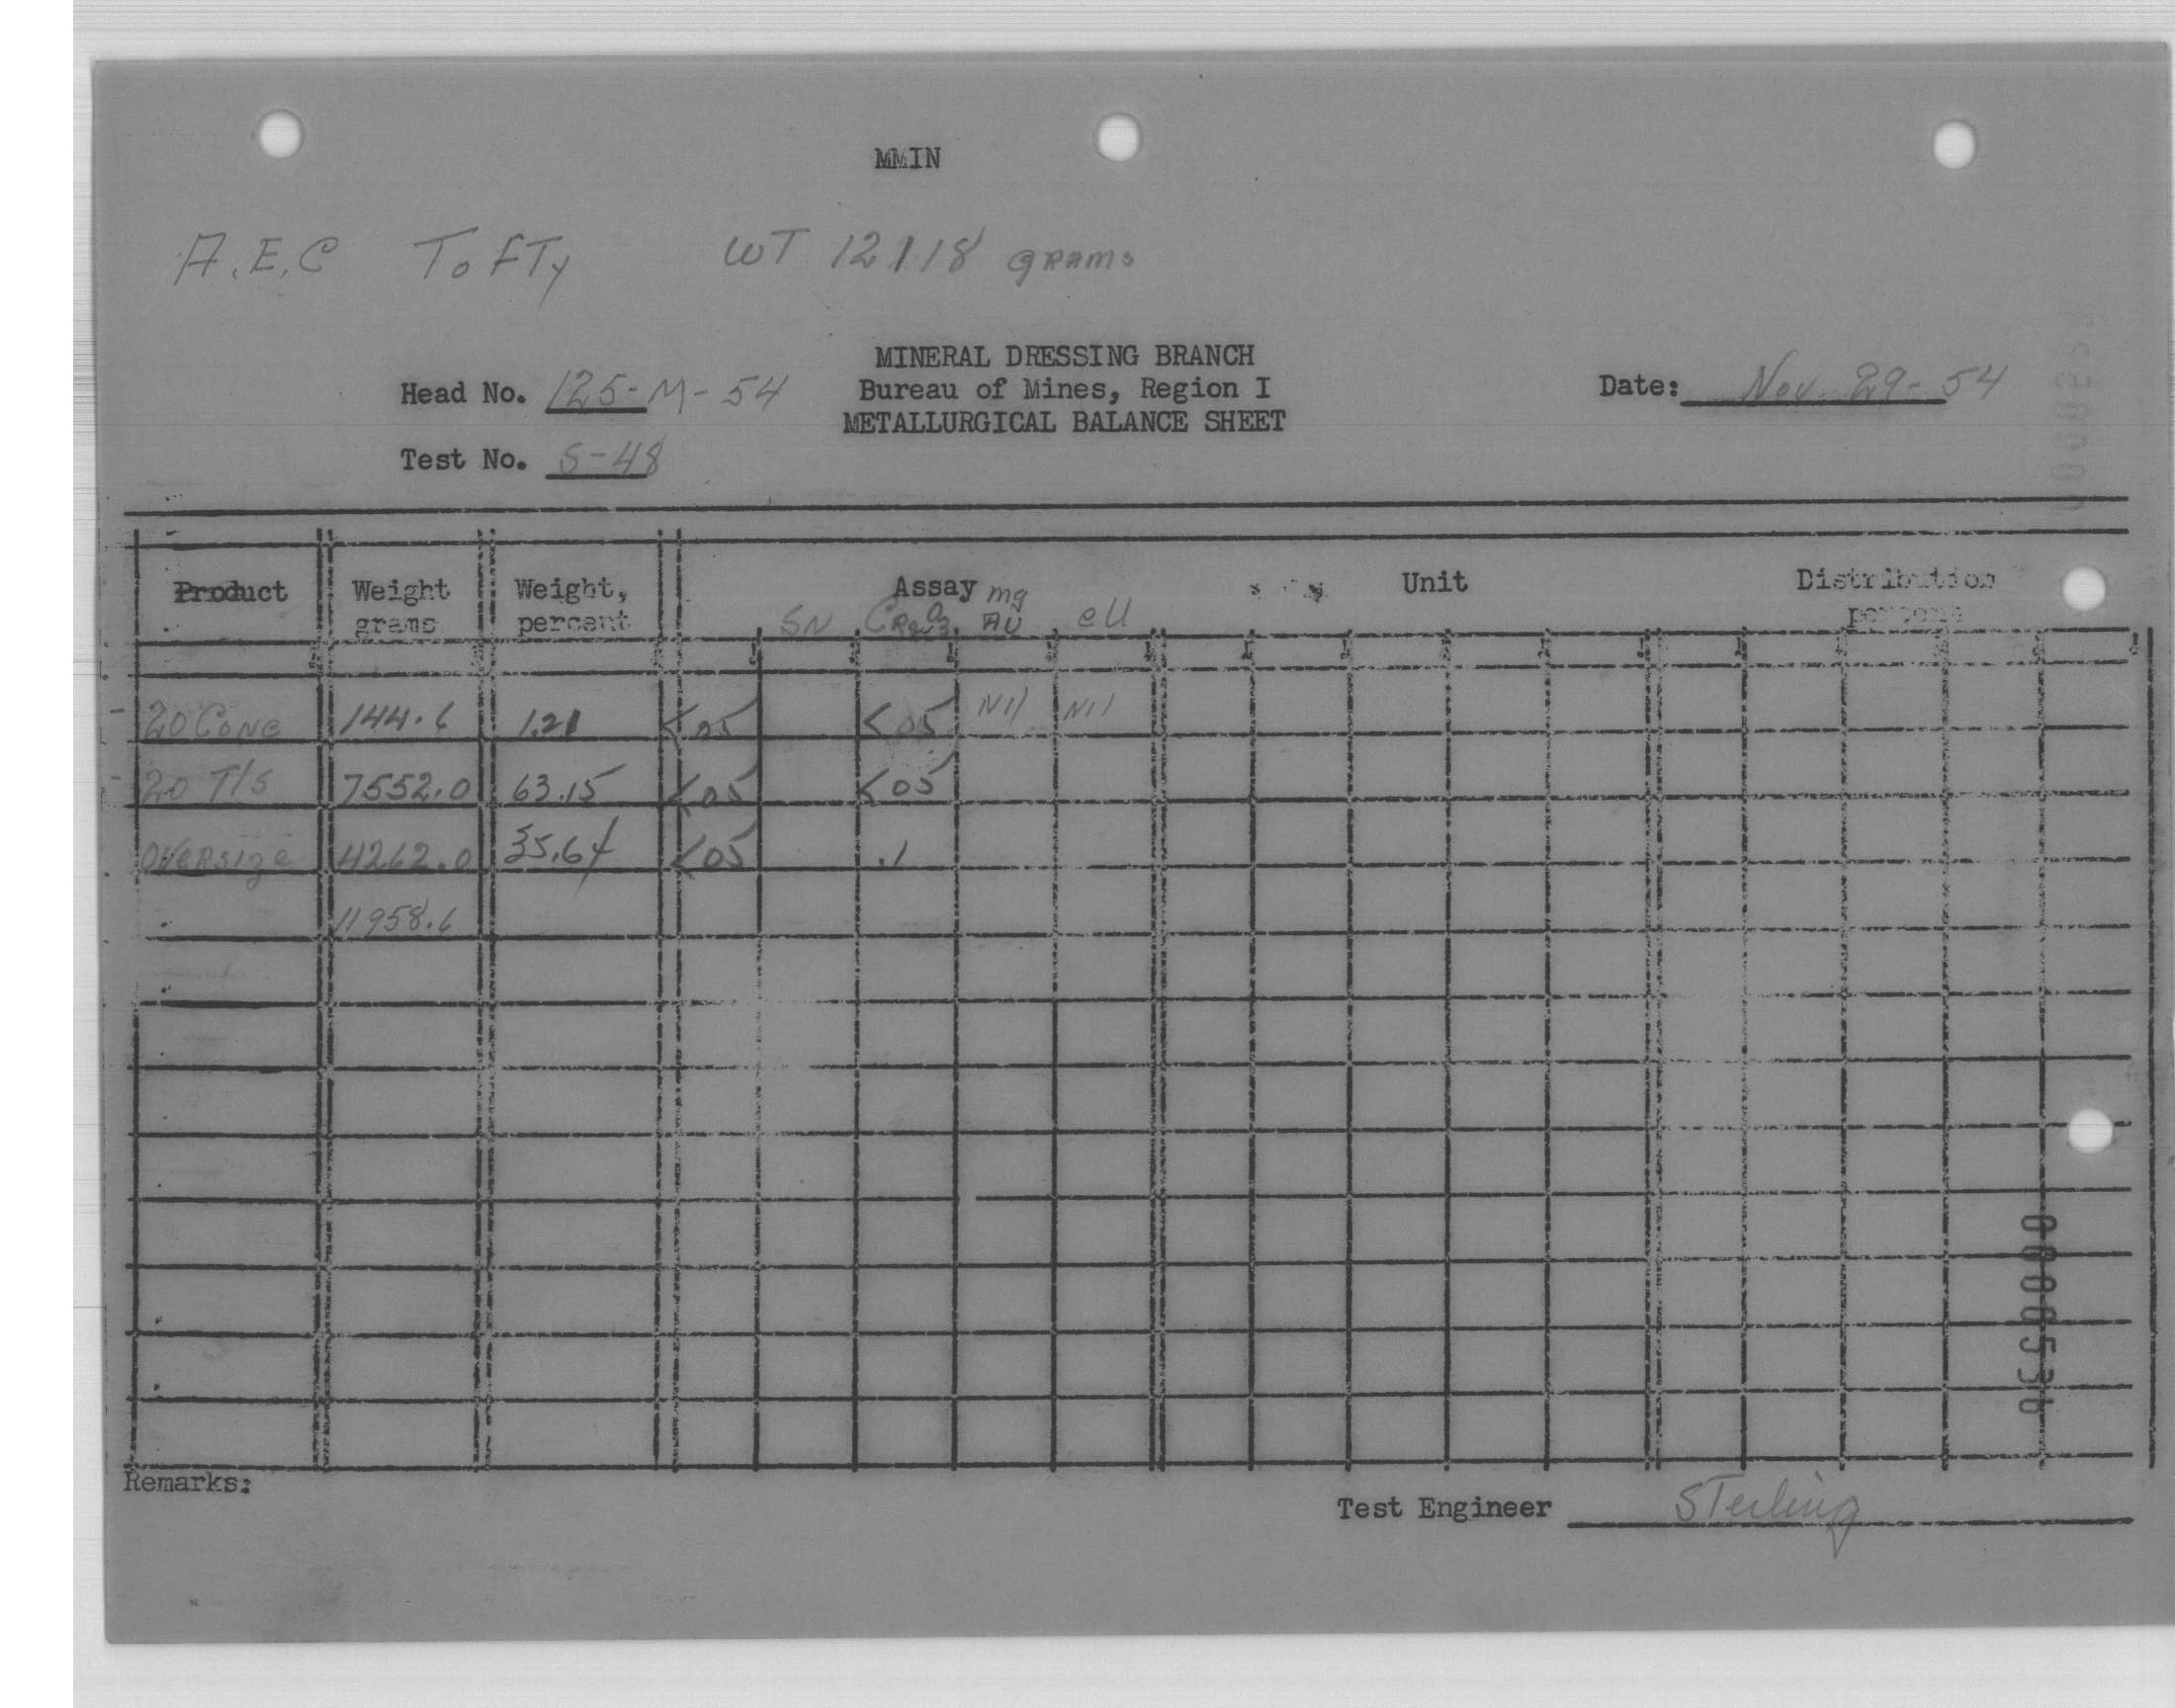 MMIN
A.E.C TofTy WT 12118 grams
MINERAL DRESSING BRANCH
Head No. 125-M-54 Bureau of Mines, Region I Date: Nov 29-54
METALLURGICAL BALANCE SHEET
Test No. S-48
Product Weight grams Weight, percent Assay mg Unit Distribution
SN CR2O3 AU eU
-20 Conc 144.6 1.21 <05 <05 Nil Nil
-20 T/s 7552.0 63.15 <05 <05
Oversize 4262.0 35.64 <05 .1
11958.6
Remarks:
Test Engineer Sterling
0000536